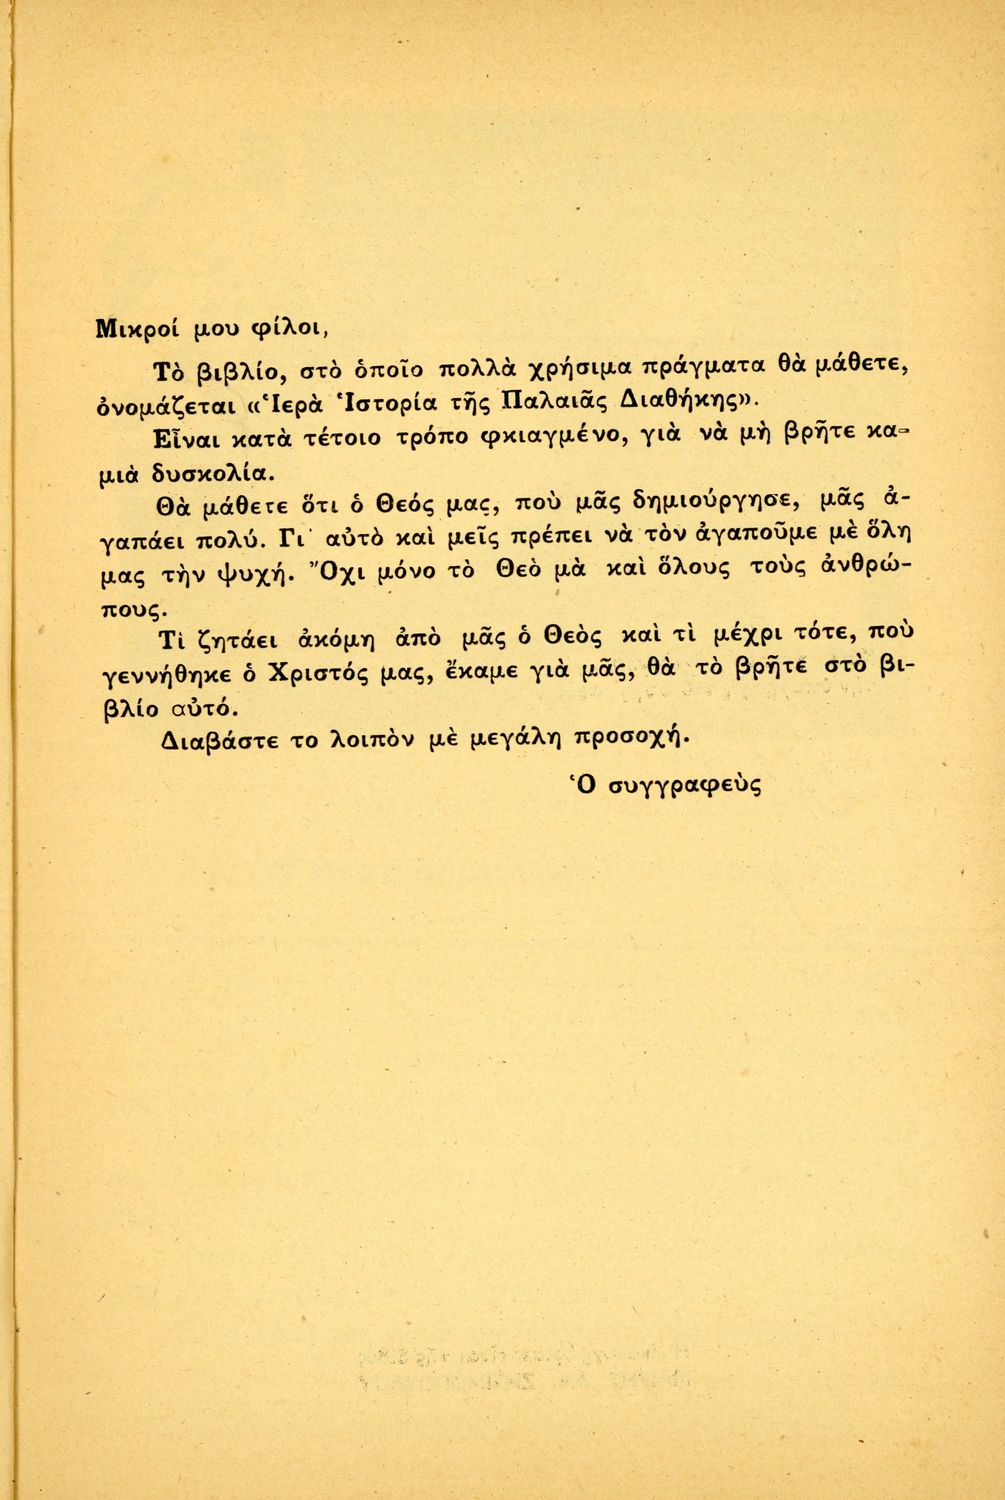 Μικροί μου φίλοι,
Τὸ βιβλίο, στὸ ὁποῖο πολλὰ χρήσιμα πράγματα θὰ μάθετε,
ὀνομάζεται «Ἱερὰ Ἱστορία τῆς Παλαιᾶς Διαθήκης».
Εἶναι κατὰ τέτοιο τρόπο φκιαγμένο, γιὰ νὰ μὴ βρῆτε κα-
μιὰ δυσκολία.
Θὰ μάθετε ὅτι ὁ Θεός μας, ποὺ μᾶς δημιούργησε, μᾶς ἀ-
γαπάει πολύ. Γι' αὐτὸ καὶ μεῖς πρέπει νὰ τὸν ἀγαποῦμε μὲ ὅλη
μας τὴν ψυχή. Ὄχι μόνο τὸ Θεὸ μὰ καὶ ὅλους τοὺς ἀνθρώ-
πους.
Τὶ ζητάει ἀκόμη ἀπὸ μᾶς ὁ Θεὸς καὶ τὶ μέχρι τότε, ποὺ
γεννήθηκε ὁ Χριστός μας, ἔκαμε γιὰ μᾶς, θὰ τὸ βρῆτε στὸ βι-
βλίο αὐτό.
Διαβάστε το λοιπὸν μὲ μεγάλη προσοχή.
Ὁ συγγραφεὺς